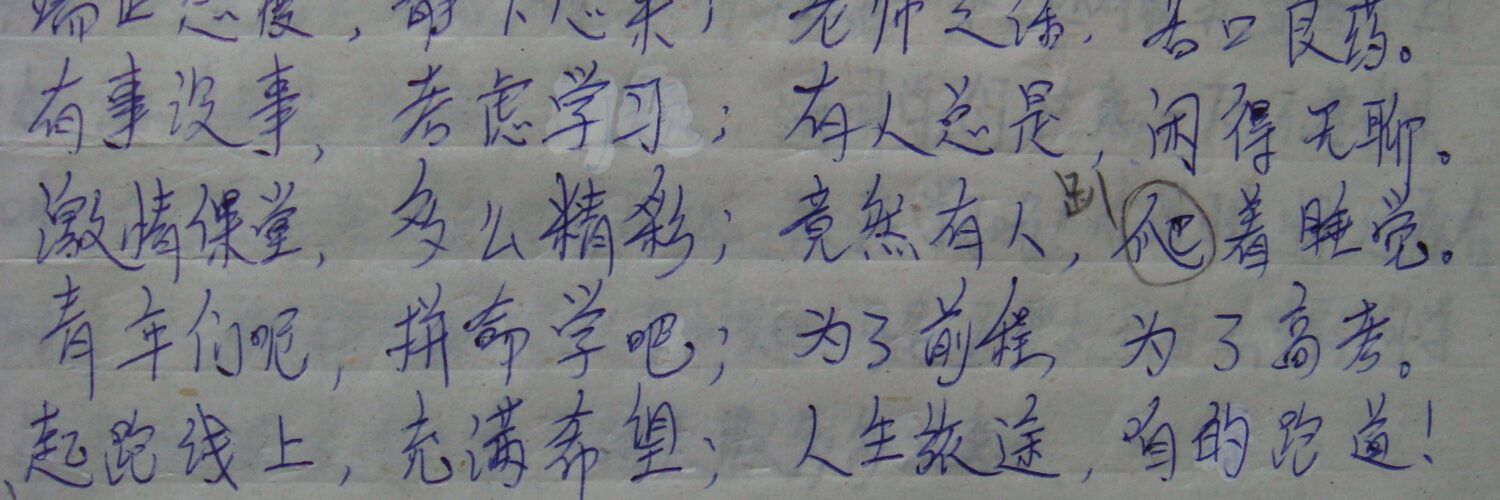 端正态度，静下心来；老师之语，苦口良药。
有事没事，考虑学习；有人总是，闲得无聊。
激情课堂，多么精彩；竟然有人，趴爬着睡觉。
青年们呢，拼命学吧；为了前程，为了高考。
起跑线上，充满希望；人生旅途，咱的跑道！